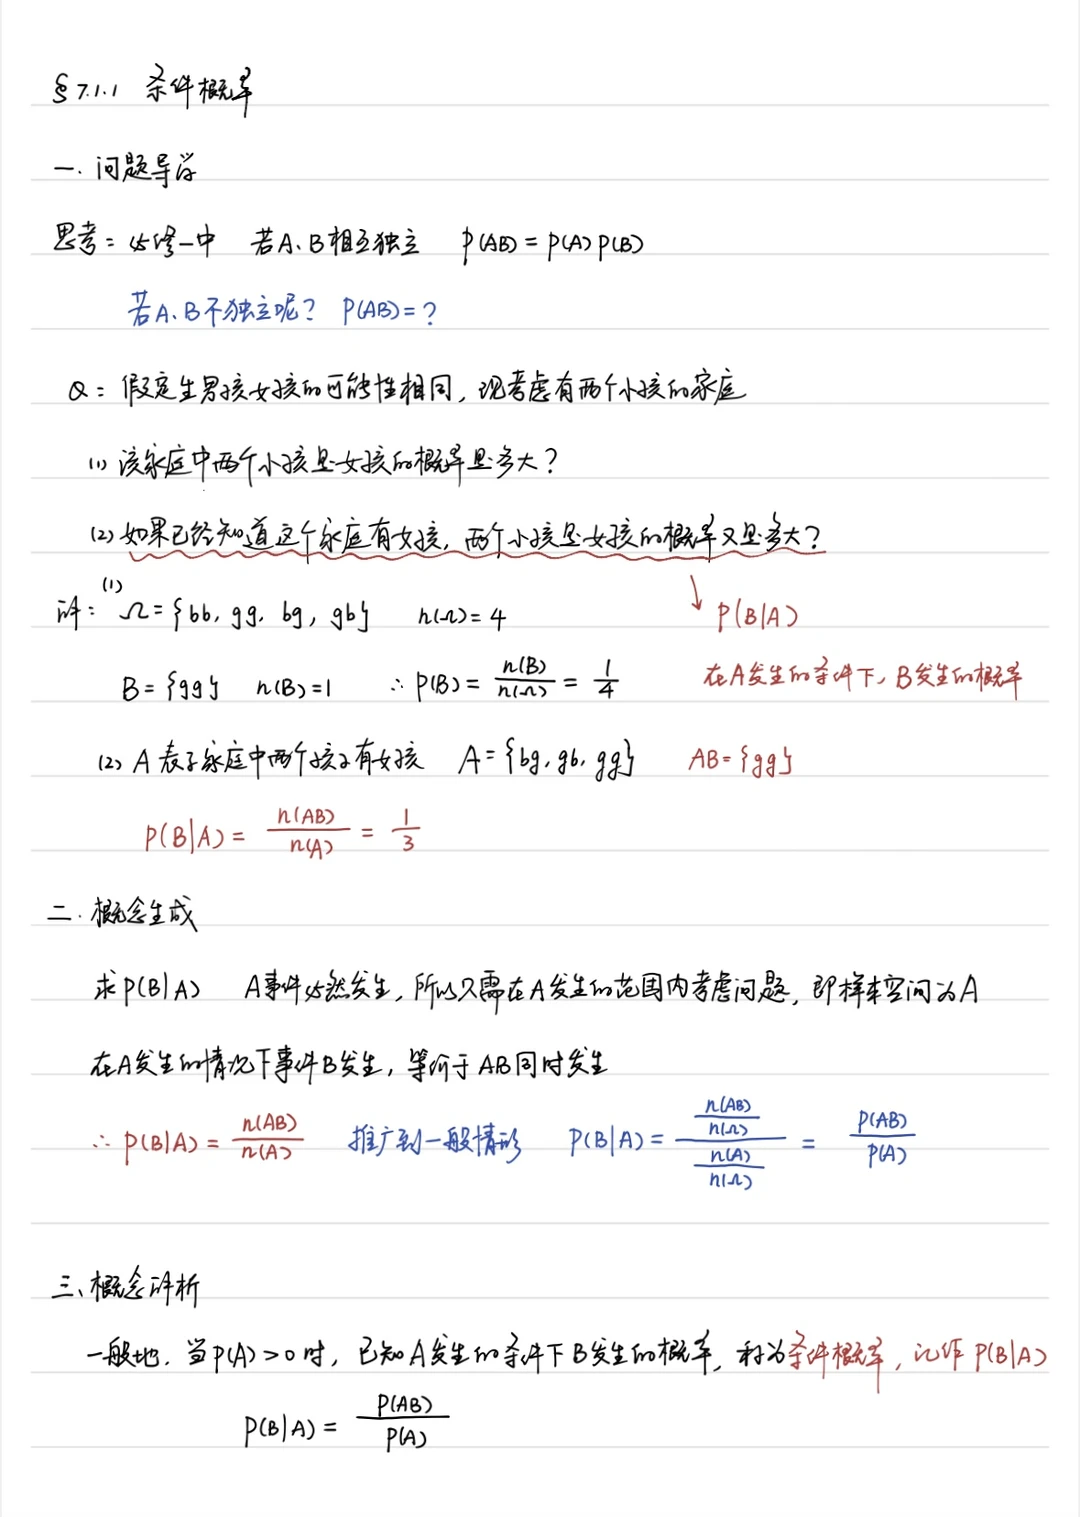 §7.1.1 条件概率
一. 问题导学
思考: 必修一中 若A、B相互独立 P(AB)=P(A)P(B)
若A、B不独立呢? P(AB)=?
Q: 假定生男孩女孩的可能性相同, 现考虑有两个小孩的家庭
(1) 该家庭中两个小孩是女孩的概率是多大?
(2) 如果已经知道这个家庭有女孩, 两个小孩是女孩的概率又是多大?
详: (1) Ω={bb, gg, bg, gb} n(Ω)=4 ↓ P(B|A)
B={gg} n(B)=1 ∴ P(B)= n(B)/n(Ω) = 1/4 在A发生的条件下, B发生的概率
(2) A表示家庭中两个孩子有女孩 A={bg, gb, gg} AB={gg}
P(B|A)= n(AB)/n(A) = 1/3
二. 概念生成
求P(B|A) A事件必然发生, 所以只需在A发生的范围内考虑问题, 即样本空间为A
在A发生的情况下事件B发生, 等价于AB同时发生
∴ P(B|A)= n(AB)/n(A) 推广到一般情形 P(B|A)= (n(AB)/n(Ω))/(n(A)/n(Ω)) = P(AB)/P(A)
三、概念详析
一般地. 当P(A)>0时, 已知A发生的条件下B发生的概率, 称为条件概率, 记作P(B|A)
P(B|A)= P(AB)/P(A)